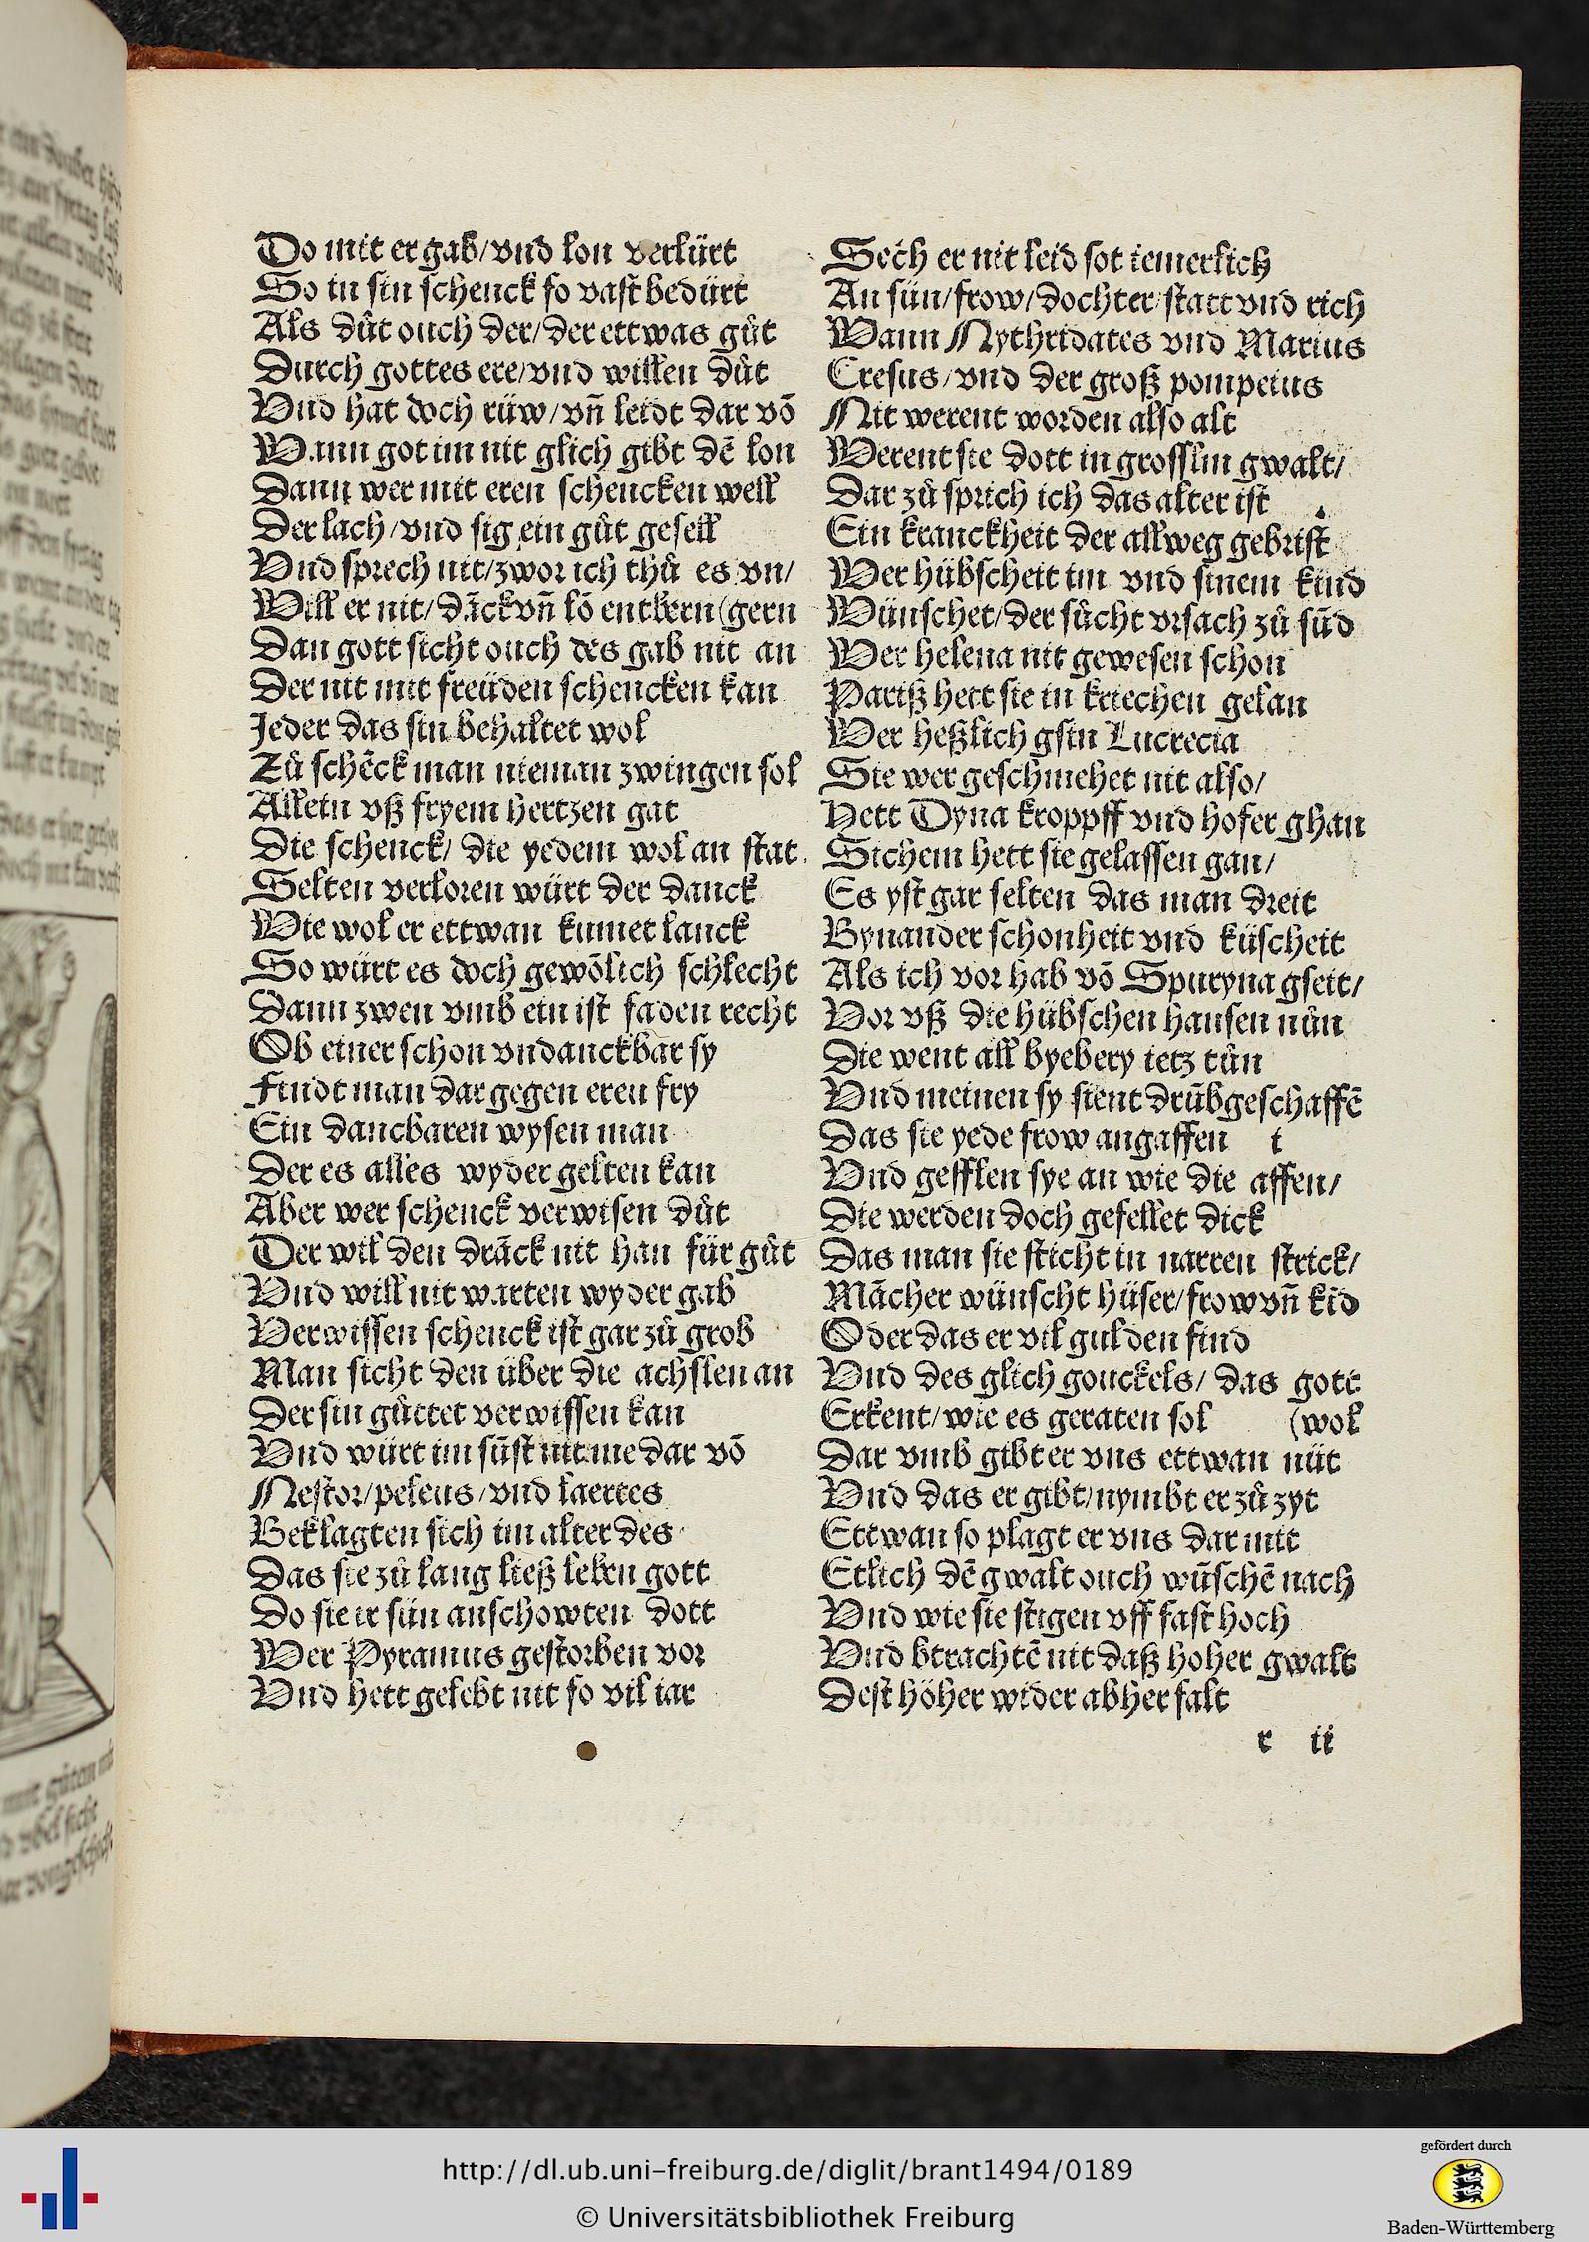 Do mit er gab/vnd lon verlürt
So in sin schenck so vast bedürt
Als důt ouch der/der ettwas gůt
Durch gottes ere/vnd willen důt
Vnd hat doch rüw/vn̄ leidt dar vō
Wann got im nit glich gibt dē lon
Dann wer mit eren schencken well
Der lach/vnd sig ein gůt gesell
Vnd sprech nit/zwor ich thů es vn/
Will er nit/dāck vn̄ lō entbern (gern
Dan gott sicht ouch des gab nit an
Der nit mit freüden schencken kan
Jeder das sin behaltet wol
Zů schēck man nieman zwingen sol
Allein vß fryem hertzen gat
Die schenck/ die yedem wol an stat
Selten verloren würt der danck
Wie wol er ettwan kumet lanck
So würt es doch gewōlich schlecht
Dann zwen vmb ein ist faden recht
Ob einer schon vndanckbar sy
Findt man dar gegen eren fry
Ein dancbaren wysen man
Der es alles wyder gelten kan
Aber wer schenck verwisen důt
Der wil den drāck nit han für gůt
Vnd will nit warten wyder gab
Verwissen schenck ist gar zů grob
Man sicht den über die achslen an
Der sin gůttet verwissen kan
Vnd würt im sūst nit me dar vō
Nestor/peleus/vnd laertes
Beklagten sich im alter des
Das sie zů lang ließ leben gott
Do sie ir sün anschowten dott
Wer Pyramus gestorben vor
Vnd hett gelebt nit so vil iar
Sech er nit leid sot iemerlich
An sün/frow/dochter/statt vnd rich
Wann Mythridates vnd Marius
Cresus/vnd der groß pompeius
Nit werent worden also alt
Werent sie dott in grosslm gwalt/
Dar zů sprich ich das alter ist
Ein kranckheit der allweg gebrist
Wer hübscheit im vnd sinem kind
Wünschet/der sůcht vrsach zů sūd
Wer helena nit gewesen schon
Pariß hett sie in kriechen gelan
Wer heßlich gsin Lucrecia
Sie wer geschmehet nit also/
Hett Dyna kroppff vnd hofer ghan
Sichem hett sie gelassen gan/
Es yst gar selten das man dreit
Bynander schonheit vnd küscheit
Als ich vor hab vō Spuryna gseit/
Vor vß die hübschen hansen nůn
Die went all byebery ietz tůn
Vnd meinen sy sient drūb geschaffē
Das sie yede frow angaffen t
Vnd gefflen sye an wie die affen/
Die werden doch gefellet dick
Das man sie sticht in narren strick/
Mācher wünscht hüser/frow vn̄ kīd
Oder das er vil gulden find
Vnd des glich gouckels/ das gott
Erkent/wie es geraten sol (wol
Dar vmb gibt er vns ettwan nüt
Vnd das er gibt/nymbt er zů zyt
Ettwan so plagt er vns dar mit
Etlich dē gwalt ouch wūschē nach
Vnd wie sie stigen vff fast hoch
Vnd btrachtē nit daß hoher gwalt
Dest höher wider abher falt
r ii
http://dl.ub.uni-freiburg.de/diglit/brant1494/0189
© Universitätsbibliothek Freiburg
gefördert durch
Baden-Württemberg